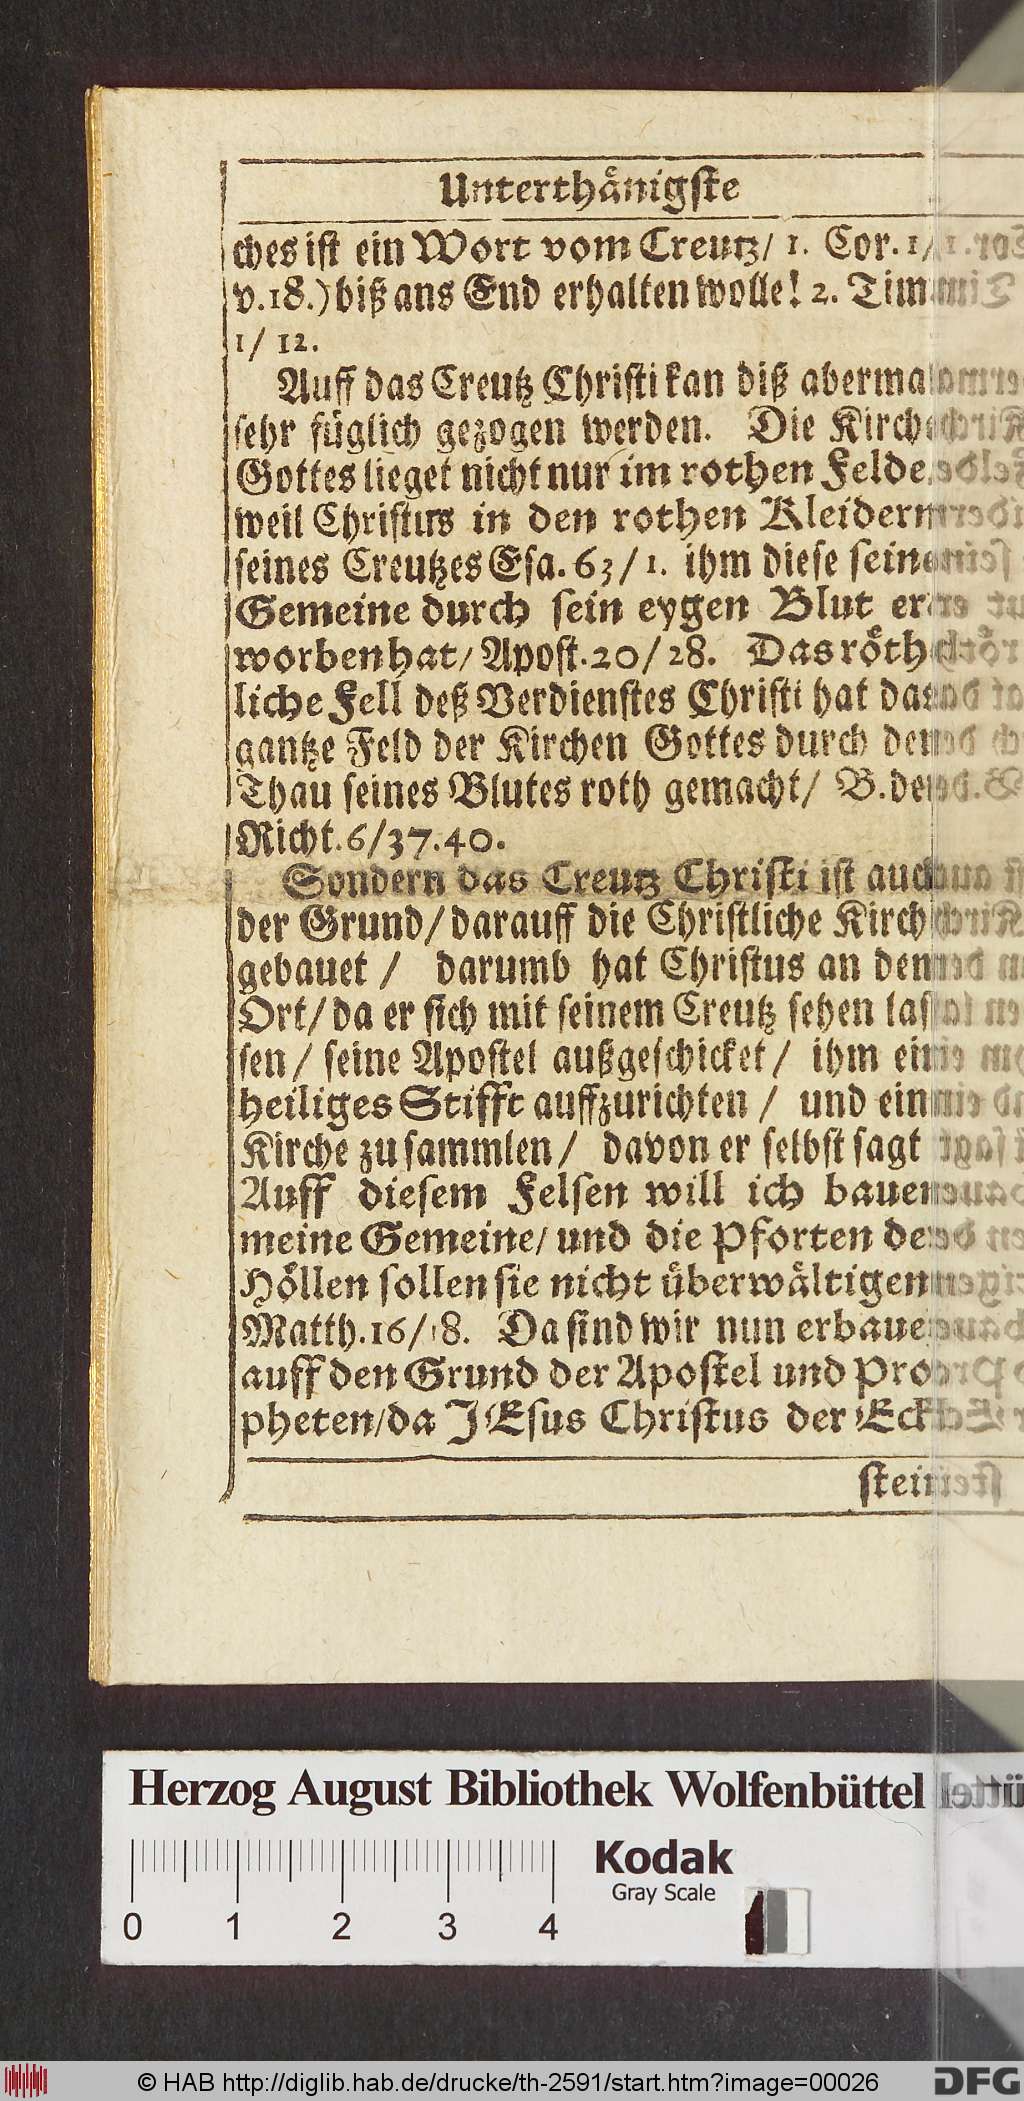 Unterthänigste
ches ist ein Wort vom Creutz/ 1. Cor. 1/
v.18.) biß ans End erhalten wolle! 2. Tim
1/ 12.
Auff das Creutz Christi kan diß abermal
sehr füglich gezogen werden. Die Kirch
Gottes lieget nicht nur im rothen Felde
weil Christus in den rothen Kleidern
seines Creutzes Esa. 63/1. ihm diese seine
Gemeine durch sein eygen Blut er
worben hat/ Apost. 20/28. Das röth
liche Fell deß Verdienstes Christi hat das
gantze Feld der Kirchen Gottes durch den
Thau seines Blutes roth gemacht/ B. der
Richt. 6/37.40.
Sondern das Creutz Christi ist auch
der Grund/ darauff die Christliche Kirch
gebauet / darumb hat Christus an dem
Ort/ da er sich mit seinem Creutz sehen las
sen/ seine Apostel außgeschicket/ ihm ein
heiliges Stifft auffzurichten / und ein
Kirche zu sammlen/ davon er selbst sagt
Auff diesem Felsen will ich bauen
meine Gemeine/ und die Pforten der
Höllen sollen sie nicht überwältigen
Matth. 16/18. Da sind wir nun erbauet
auff den Grund der Apostel und Pro
pheten/ da JEsus Christus der Eck
stein
Herzog August Bibliothek Wolfenbüttel
Kodak
Gray Scale
0 1 2 3 4
© HAB http://diglib.hab.de/drucke/th-2591/start.htm?image=00026
DFG